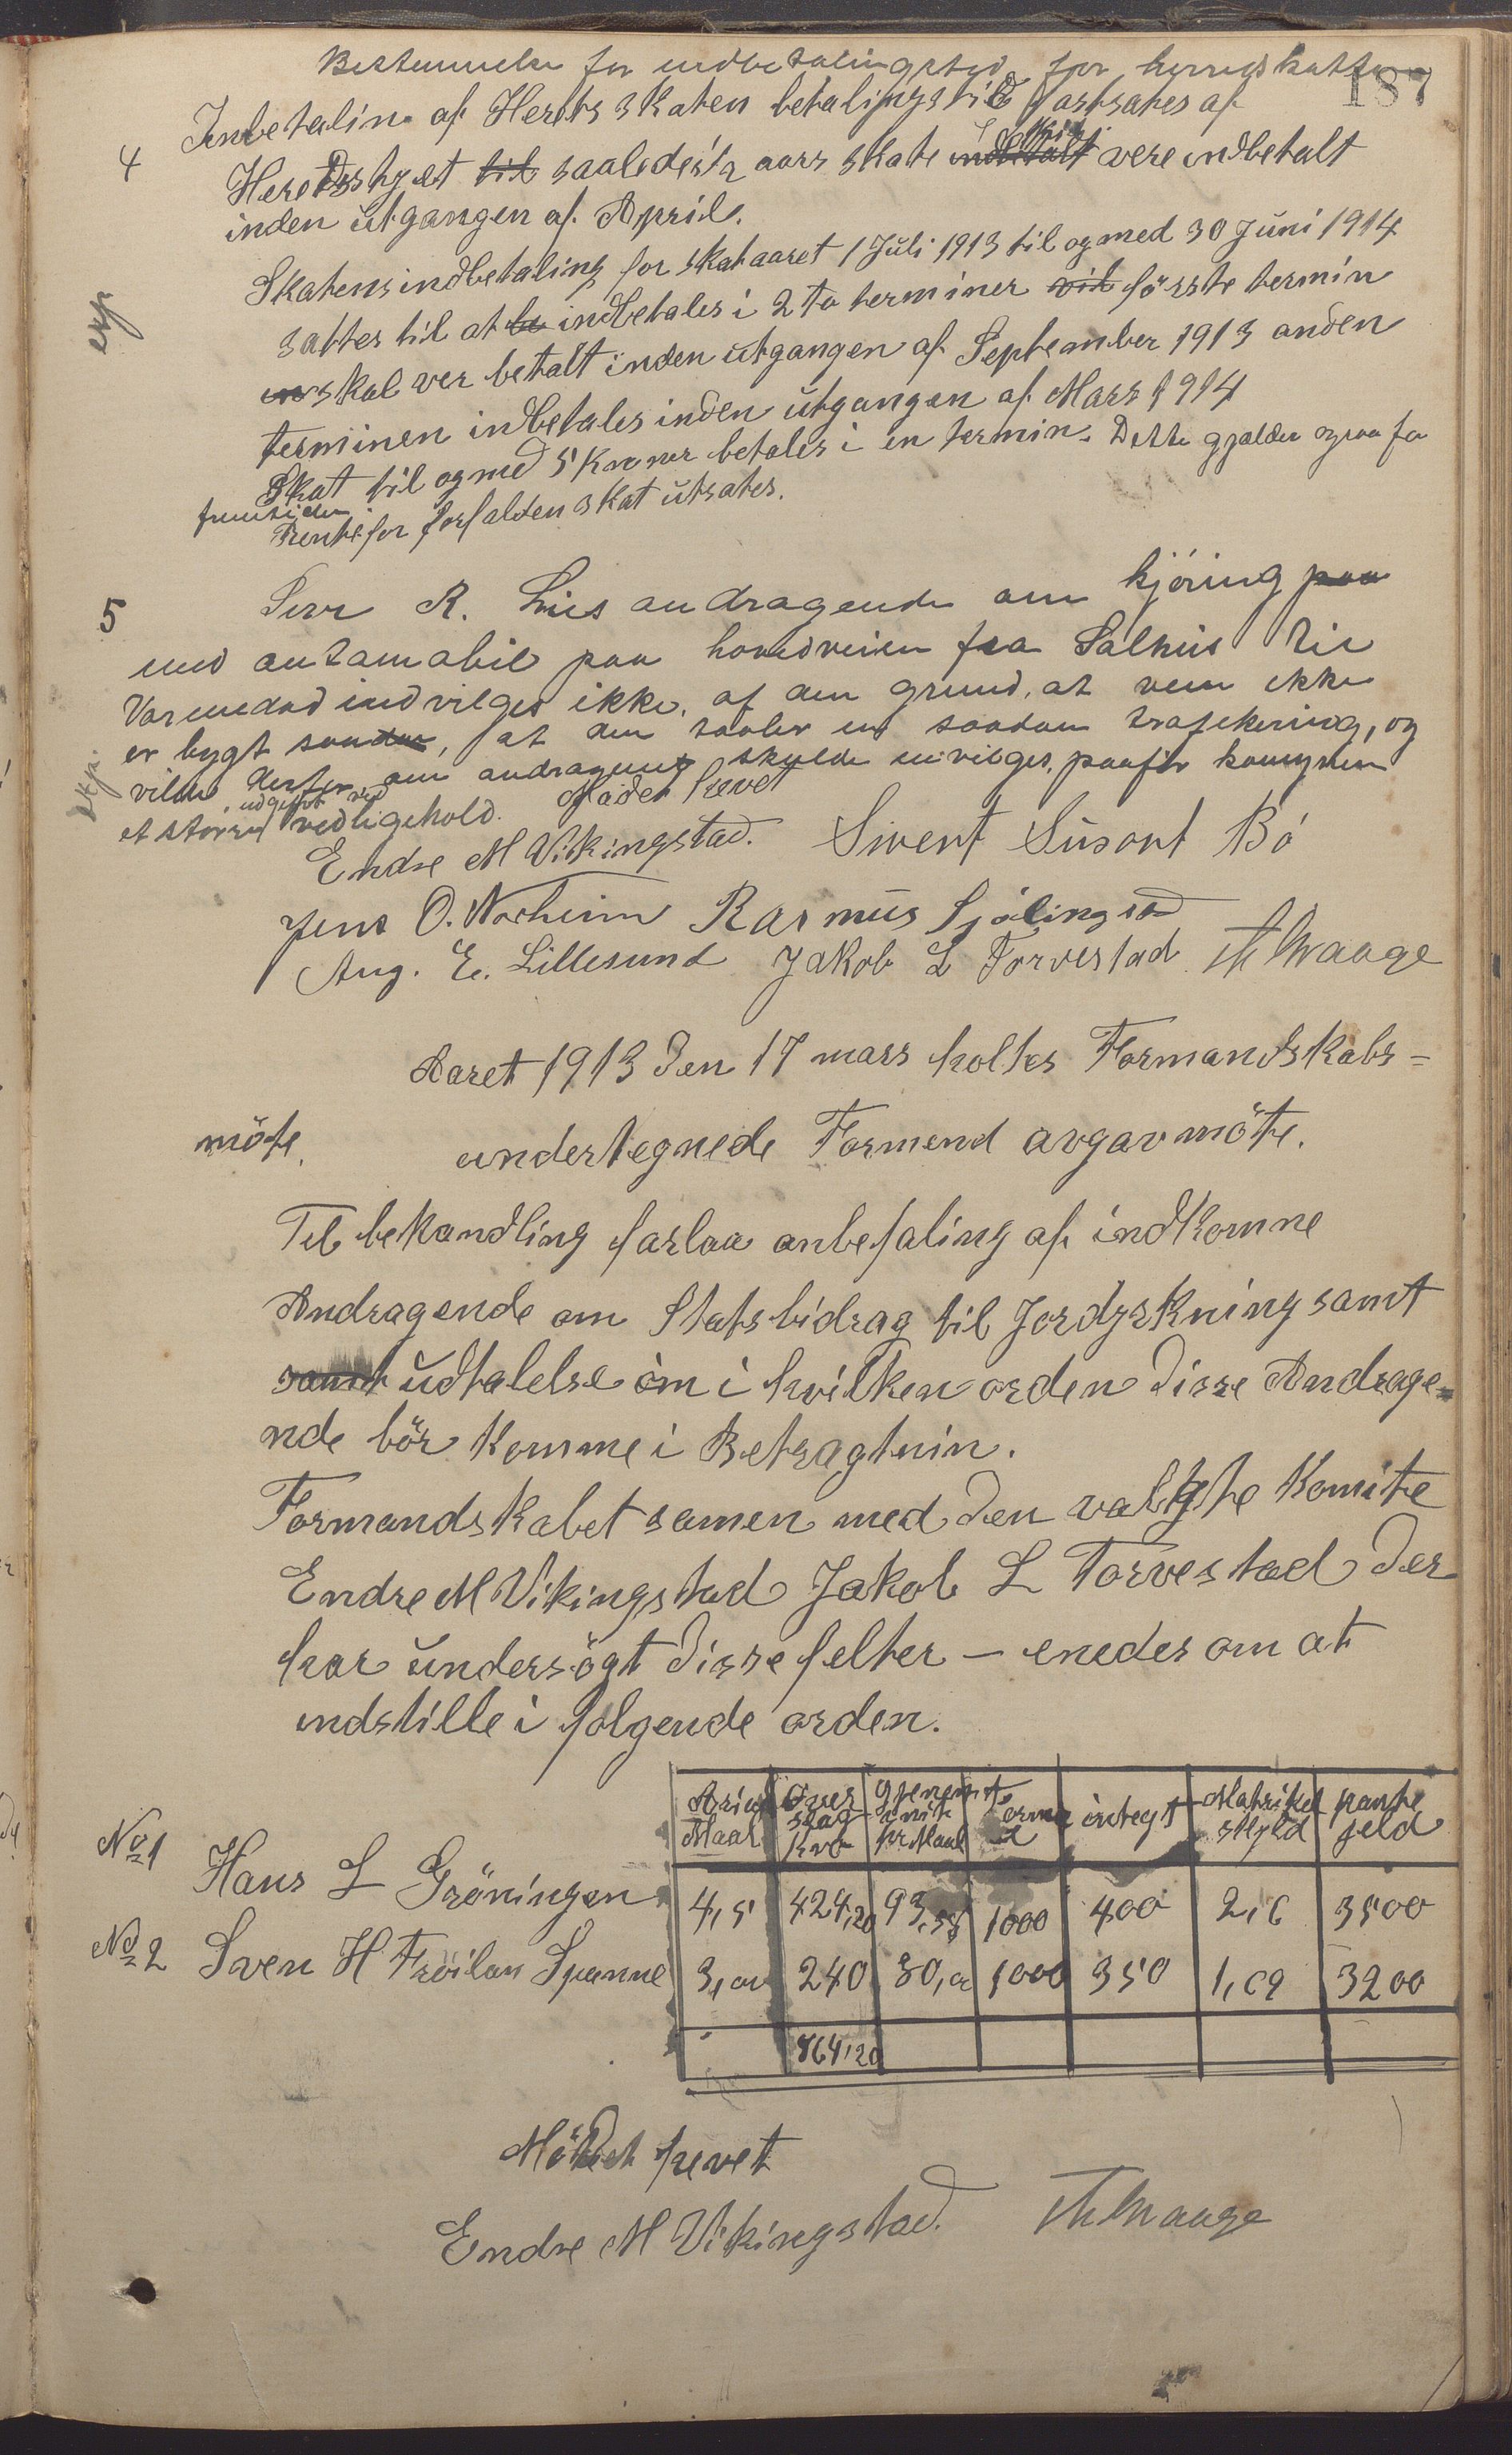 187
Bestemmelse for indbetalingstid for herredskatten
4 Inbetalin af Herets skaten betalingstid fastsates af
Heredsstyret til saaledes ½ aars skate indbetalt vere indbetalt
inden utgangen af April.
Skatens indbetaling for skataaret 1 Juli 1913 til og med 30 Juni 1914
exp
sattes til at be indbetales i 2 to terminer vil försste termin
skal ver betalt inden utgangen af September 1913 anden
terminen indbetales inden utgangen af Mars 1914
Skat til og med 5 Kroner betales i en termin. Dette gjælder ogsaa for
fremtiden
Rente for forfalden skat utsates.
5 R. andragende om kjöring paa
med automobil paa hovedveien fra Salhus til
Varmedad indvilges ikke, af den grund, at veien ikke
er bygt saadan, at den taaler en saadan trafikering, og
exp.
vilde derfor om andragenet skulde invilges, paaför komunen
et större udgift ved vedligehold. Mödet hevet
Endre M Vikingstad. Sivert Susort Bö
Jens O. Norheim Rasmus Sjölingstad
Aug. E. Lillesund Jakob L Torvestad Th Waage
Aaret 1913 den 17 mars holtes Formandskabs=
möte. undertegnede Formend avgav möte.
Til behandling forlaa anbefaling af indkomne
Andragende om Statsbidrag til Jordyrkning samt
samt udtalelse om i hvilken orden disse Andrage=
nde bör komme i Betragtnin.
Formandskabet samen med den valgte Komite
Endre M Vikingstad Jakob L Torvestad der
har undersögt disse felter — enedes om at
indstille i folgende orden.
Maal Over slag kro pr Maal integt Matrikel skyld pante jeld
No 1 Hans L Gröningen 4,5 424,20 93,58 1000 400 2,6 3500
No 2 Sven H Fröiland Spanne 3,00 240 80,00 1000 350 1,69 3200
764,20
Mödet hevet
Endre M Vikingstad. Th Waage